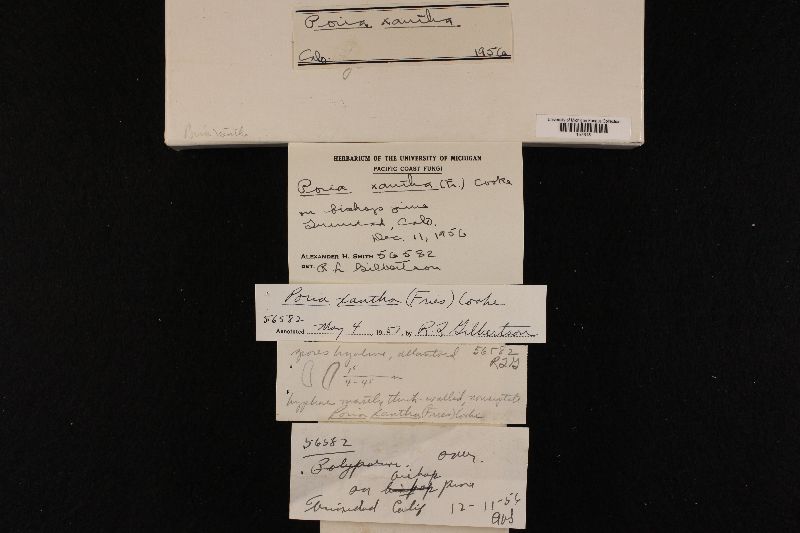 Poria xantha
Calif. 1956
Poria xantha
University of Michigan Fungus Collection
HERBARIUM OF THE UNIVERSITY OF MICHIGAN
PACIFIC COAST FUNGI
Poria xantha (Fr.) Cooke
on bishop pine
Trinidad, Calif.
Dec. 11, 1956
ALEXANDER H. SMITH 56582
DET. R L Gilbertson
Poria xantha (Fries) Cooke
56582
Annotated May 4 1957 by R L Gilbertson
spores hyaline, allantoid 56582
RLG
hyphae mostly thick-walled, nonseptate
Poria xantha (Fries) Cooke
56582
Polyporus. over.
bishop
on bishop pine
Trinidad Calif 12-11-56